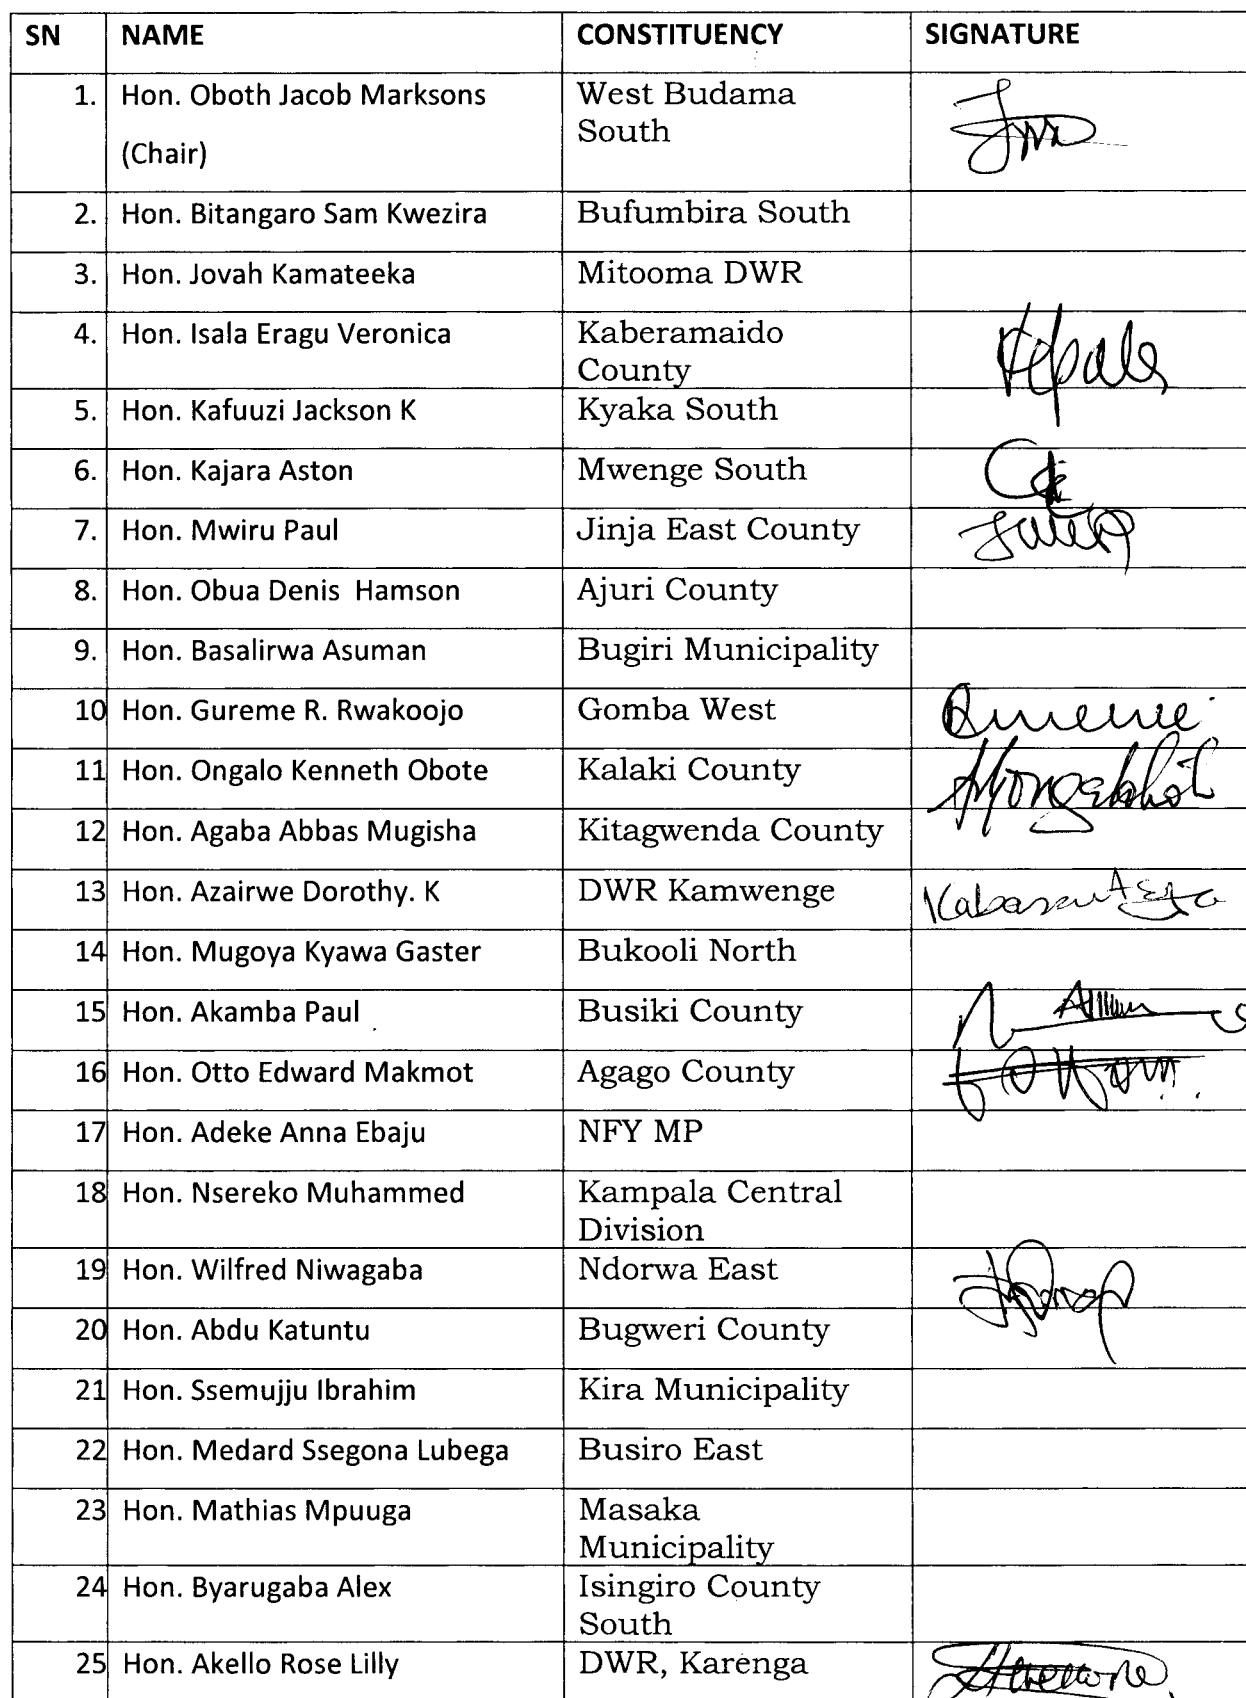 SN NAME CONSTITUENCY SIGNATURE
1. Hon. Oboth Jacob Marksons West Budama
(Chair) South
2. Hon. Bitangaro Sam Kwezira Bufumbira South
3. Hon. Jovah Kamateeka Mitooma DWR
4. Hon. Isala Eragu Veronica Kaberamaido
County
5. Hon. Kafuuzi Jackson K Kyaka South
6. Hon. Kajara Aston Mwenge South
7. Hon. Mwiru Paul Jinja East County
8. Hon. Obua Denis Hamson Ajuri County
9. Hon. Basalirwa Asuman Bugiri Municipality
10 Hon. Gureme R. Rwakoojo Gomba West
11 Hon. Ongalo Kenneth Obote Kalaki County
12 Hon. Agaba Abbas Mugisha Kitagwenda County
13 Hon. Azairwe Dorothy. K DWR Kamwenge
14 Hon. Mugoya Kyawa Gaster Bukooli North
15 Hon. Akamba Paul Busiki County
16 Hon. Otto Edward Makmot Agago County
17 Hon. Adeke Anna Ebaju NFY MP
18 Hon. Nsereko Muhammed Kampala Central
Division
19 Hon. Wilfred Niwagaba Ndorwa East
20 Hon. Abdu Katuntu Bugweri County
21 Hon. Ssemujju Ibrahim Kira Municipality
22 Hon. Medard Ssegona Lubega Busiro East
23 Hon. Mathias Mpuuga Masaka
Municipality
24 Hon. Byarugaba Alex Isingiro County
South
25 Hon. Akello Rose Lilly DWR, Karenga